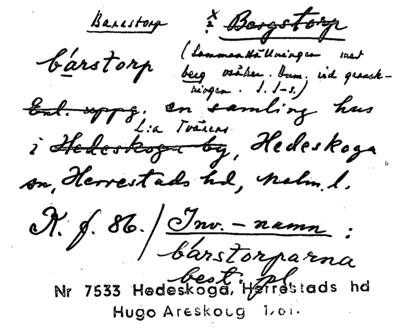 Barrstorp x: Bergstorp
bárstorp (Sammanställningen med
berg osäker. Anm. vid gransk-
ningen. I. I-s.)
Enl. uppg. en samling hus
L:a Tvären
i Hedeskoga by, Hedeskoga
sn, Herrestads hd, Malm. l.
K. f. 86. / Inv. - namn :
bárstorparna
best. pl.
Nr 7533 Hedeskoga, Herrestads hd
Hugo Areskoug